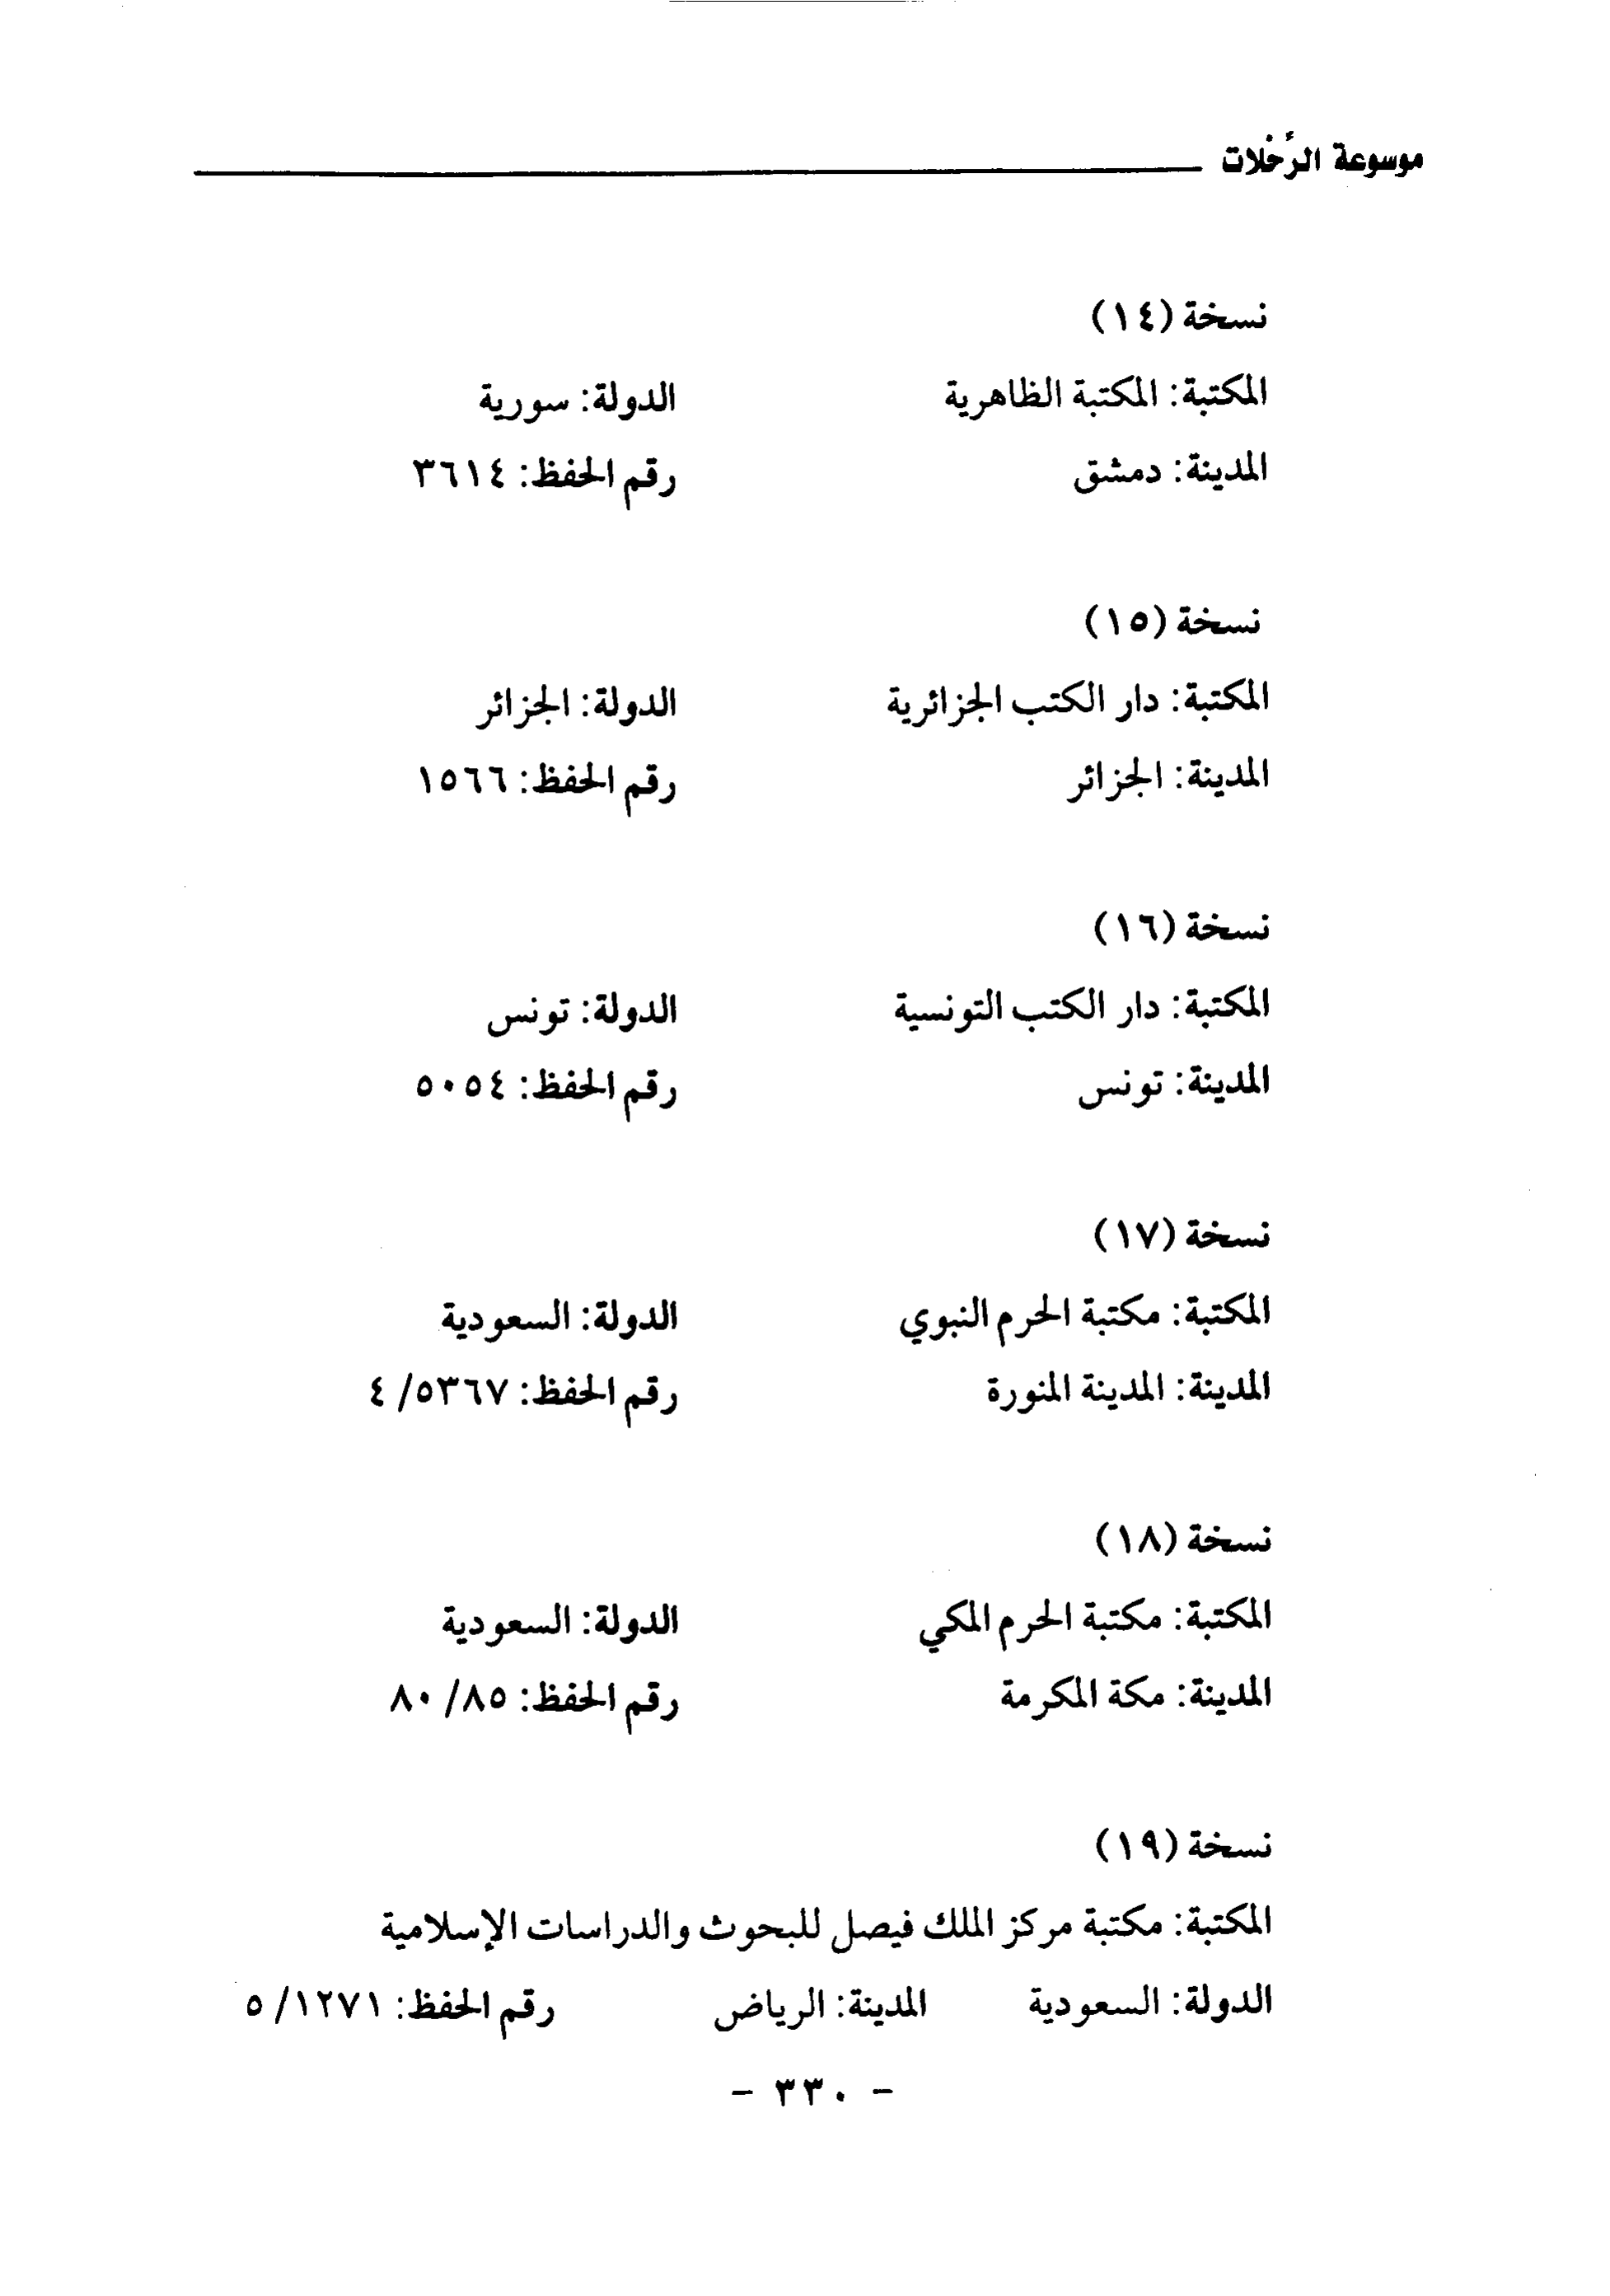 موسوعة الرَّحَلات
نسخة (١٤)
المكتبة: المكتبة الظاهرية الدولة: سورية
المدينة: دمشق رقم الحفظ: ٣٦١٤
نسخة (١٥)
المكتبة: دار الكتب الجزائرية الدولة: الجزائر
المدينة: الجزائر رقم الحفظ: ١٥٦٦
نسخة (١٦)
المكتبة: دار الكتب التونسية الدولة: تونس
المدينة: تونس رقم الحفظ: ٥٠٥٤
نسخة (١٧)
المكتبة: مكتبة الحرم النبوي الدولة: السعودية
المدينة: المدينة المنورة رقم الحفظ: ٥٣٦٧/ ٤
نسخة (١٨)
المكتبة: مكتبة الحرم المكي الدولة: السعودية
المدينة: مكة المكرمة رقم الحفظ: ٨٥/ ٨٠
نسخة (١٩)
المكتبة: مكتبة مركز الملك فيصل للبحوث والدراسات الإسلامية
الدولة: السعودية المدينة: الرياض رقم الحفظ: ١٢٧١/ ٥
- ٣٣٠ -